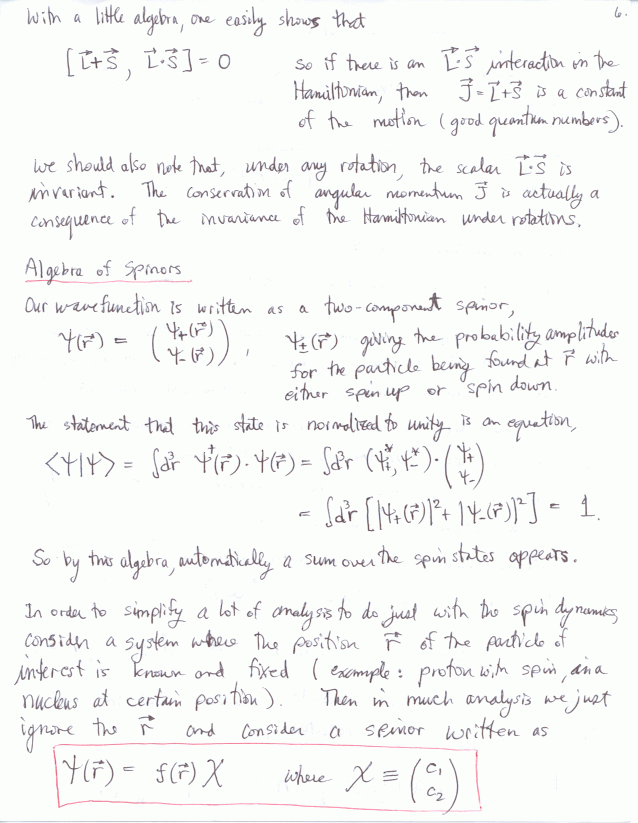 6.
With a little algebra, one easily shows that
[L⃗+S⃗, L⃗·S⃗] = 0 so if there is an L⃗·S⃗ interaction in the
Hamiltonian, then J⃗ = L⃗+S⃗ is a constant
of the motion (good quantum numbers).
We should also note that, under any rotation, the scalar L⃗·S⃗ is
invariant. The conservation of angular momentum J⃗ is actually a
consequence of the invariance of the Hamiltonian under rotations.
Algebra of Spinors
Our wavefunction is written as a two-component spinor,
Ψ(r⃗) = (Ψ+(r⃗) Ψ-(r⃗)), Ψ±(r⃗) giving the probability amplitudes
for the particle being found at r⃗ with
either spin up or spin down.
The statement that this state is normalized to unity is an equation,
<Ψ|Ψ> = ∫d³r Ψ†(r⃗)·Ψ(r⃗) = ∫d³r (Ψ+*, Ψ-*)·(Ψ+ Ψ-)
= ∫d³r [|Ψ+(r⃗)|² + |Ψ-(r⃗)|²] = 1.
So by this algebra, automatically a sum over the spin states appears.
In order to simplify a lot of analysis to do just with the spin dynamics
consider a system where the position r⃗ of the particle of
interest is known and fixed (example: proton with spin, in a
nucleus at certain position). Then in much analysis we just
ignore the r⃗ and consider a spinor written as
Ψ(r⃗) = f(r⃗) χ where χ ≡ (c₁ c₂)